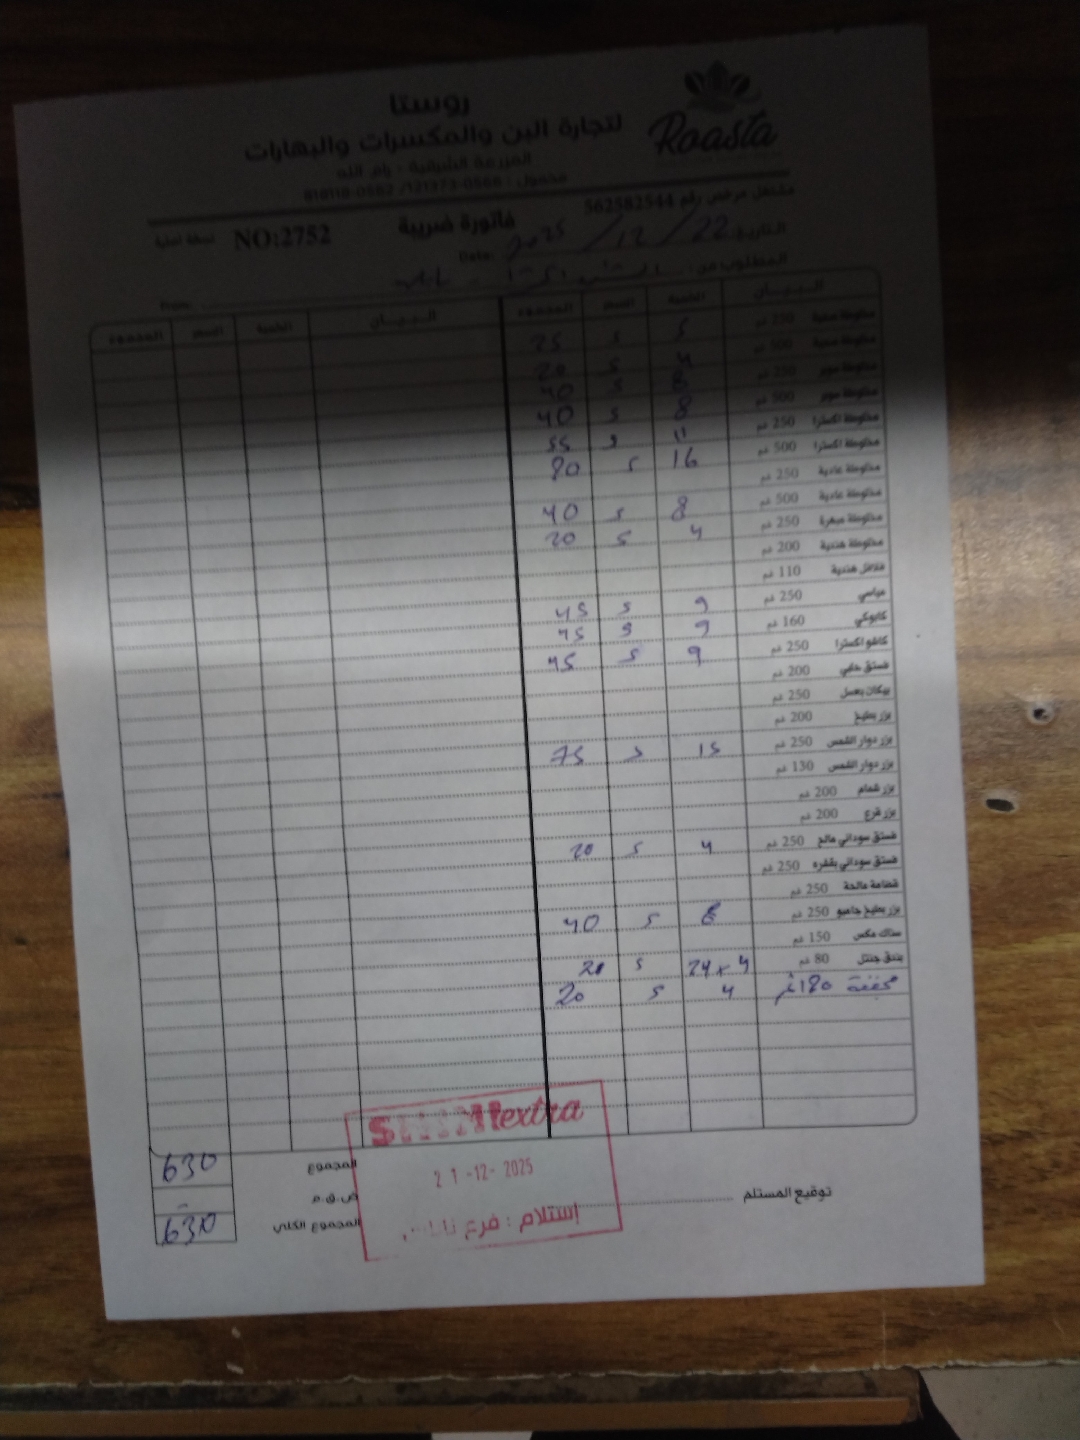 روستا
Roasta
لتجارة البن والمكسرات والبهارات
المزرعة الشرقية - رام الله
محمول : 0566-121373 / 0562-818118
مشتغل مرخص رقم 562582544
فاتورة ضريبية
NO:2752
نسخة اصلية
التاريخ: 22 / 12 / 2025 Date:
المطلوب من:
From:
البيان الكمية السعر المجموع البيان الكمية السعر المجموع
250 غم 5 5 25
500 غم 4 5 20
مخلوطة سوبر 250 غم 8 5 40
مخلوطة سوبر 500 غم 8 5 40
مخلوطة اكسترا 250 غم 11 5 55
مخلوطة اكسترا 500 غم 16 5 80
مخلوطة عادية 250 غم
مخلوطة عادية 500 غم 8 5 40
مخلوطة مبهرة 250 غم 4 5 20
مخلوطة هندية 200 غم
فلافل هندية 110 غم
250 غم 9 5 45
كابوكي 160 غم 9 5 45
كاشو اكسترا 250 غم 9 5 45
فستق حلبي 200 غم
بيكان بعسل 250 غم
بزر بطيخ 200 غم
بزر دوار الشمس 250 غم 15 5 75
بزر دوار الشمس 130 غم
بزر شمام 200 غم
بزر قرع 200 غم
فستق سوداني مالح 250 غم 4 5 20
فستق سوداني بقشره 250 غم
قضامة مالحة 250 غم
بزر بطيخ جامبو 250 غم 8 5 40
سناك مكس 150 غم
بندق جنتل 80 غم 24x4 5 20
مجففة 180 غم 4 5 20
المجموع 630
ض.ق.م -
المجموع الكلي 630
extra
21-12-2025
إستلام : فرع
توقيع المستلم